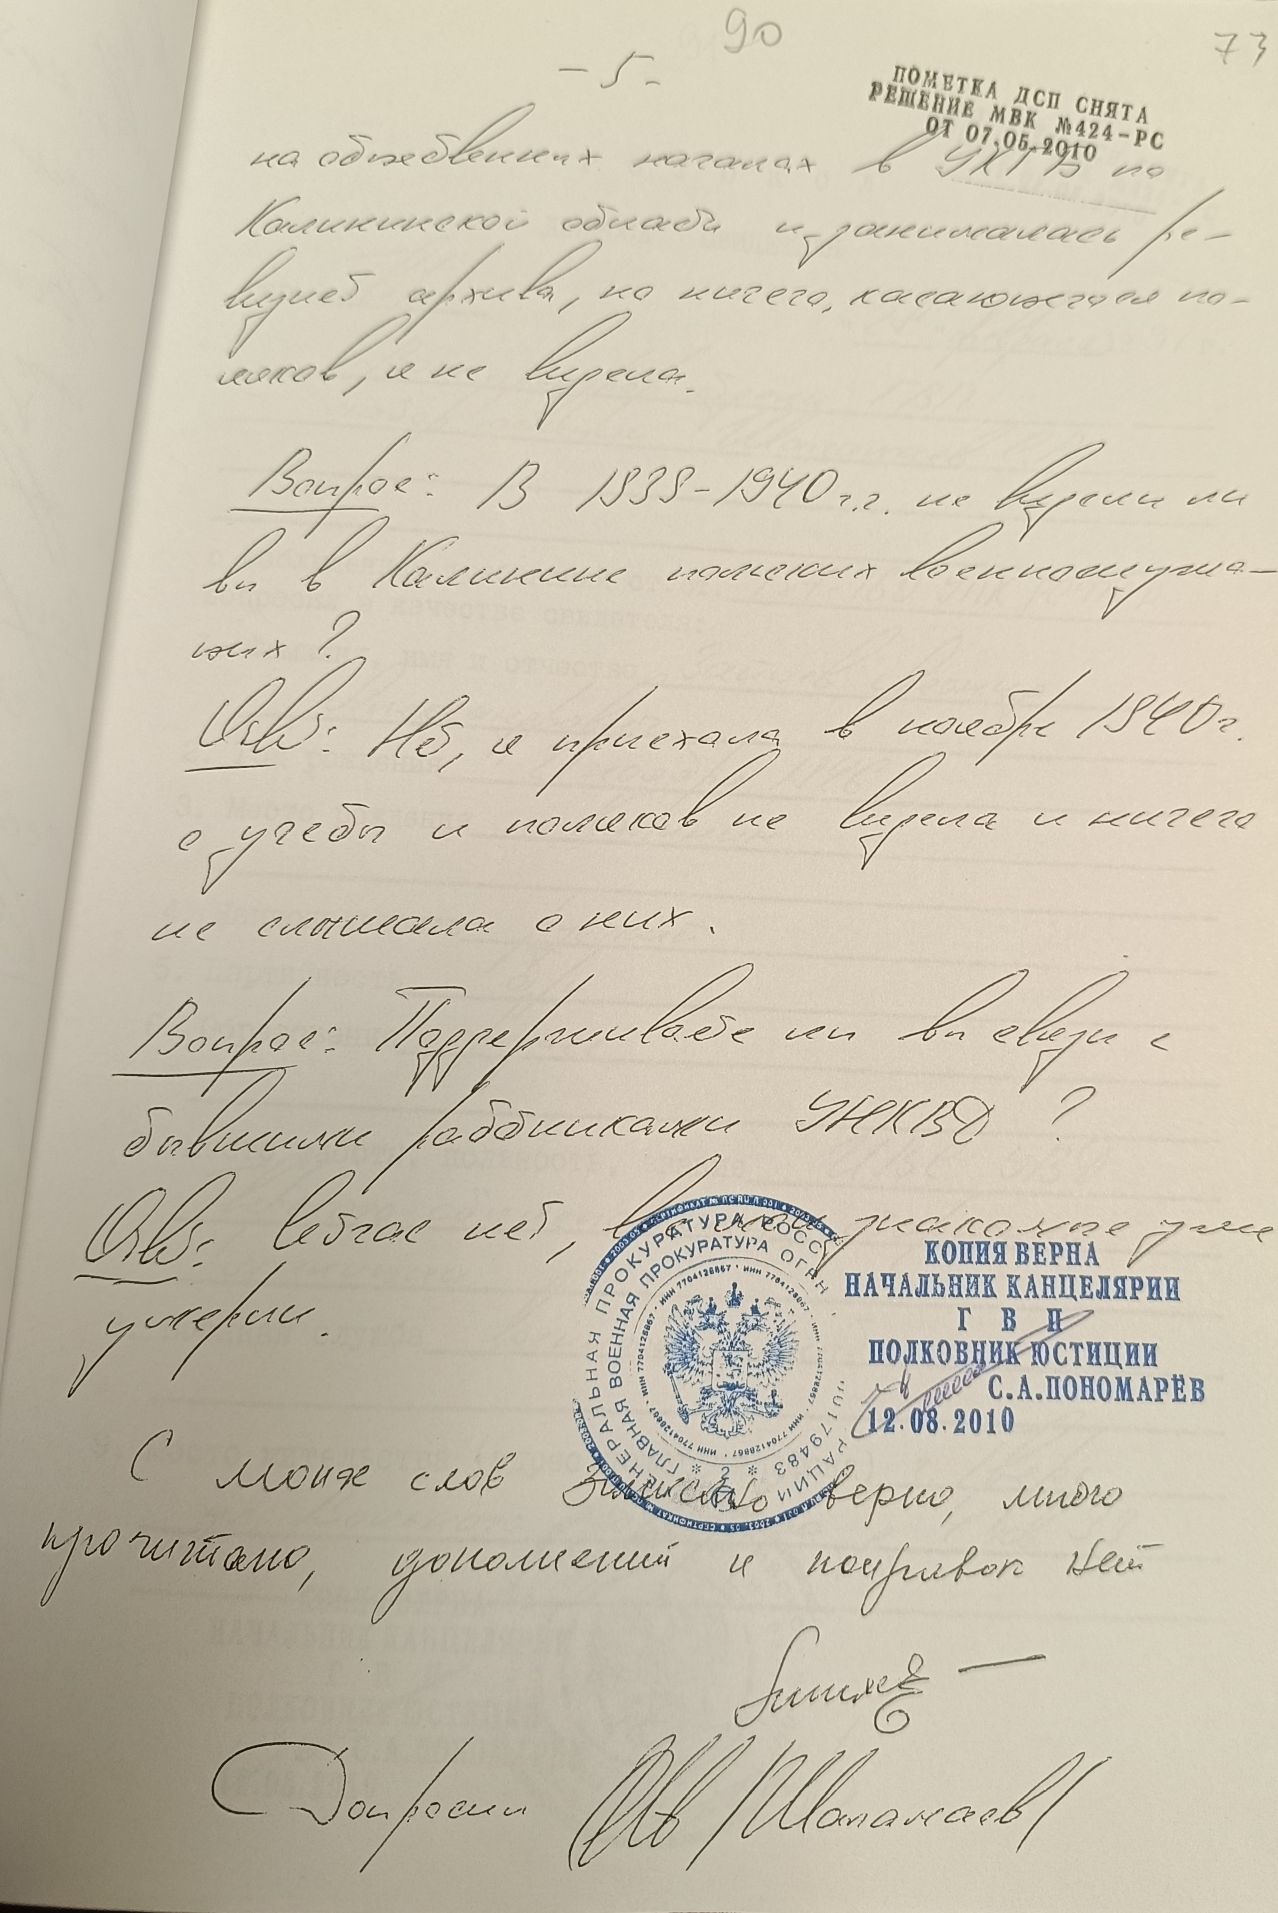 90
73
- 5 -
ПОМЕТКА ДСП СНЯТА
РЕШЕНИЕ МВК №424-РС
ОТ 07.05.2010
на общественных началах в УКГБ по
Калининской области и занималась ре-
визией архива, но ничего, касающегося по-
ляков, я не видела.
Вопрос: В 1939-1940 г.г. не видели ли
вы в Калинине польских военнослужа-
щих?
Ответ: Нет, я приехала в ноябре 1940 г.
с учебы и поляков не видела и ничего
не слышала о них.
Вопрос: Поддерживаете ли вы связи с
бывшими работниками УНКВД?
Ответ: Сейчас нет, все мои знакомые уже
умерли.
КОПИЯ ВЕРНА
НАЧАЛЬНИК КАНЦЕЛЯРИИ
Г В П
ПОЛКОВНИК ЮСТИЦИИ
С.А.ПОНОМАРЁВ
12.08.2010
ГЕНЕРАЛЬНАЯ ПРОКУРАТУРА РОСС
ГЛАВНАЯ ВОЕННАЯ ПРОКУРАТУРА
ИНН 7704128867
С моих слов записано верно, мною
прочитано, дополнений и поправок нет
Допросил /Шаламаев/